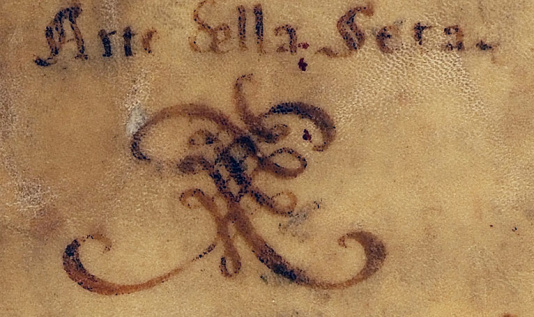 Arte della Seta.